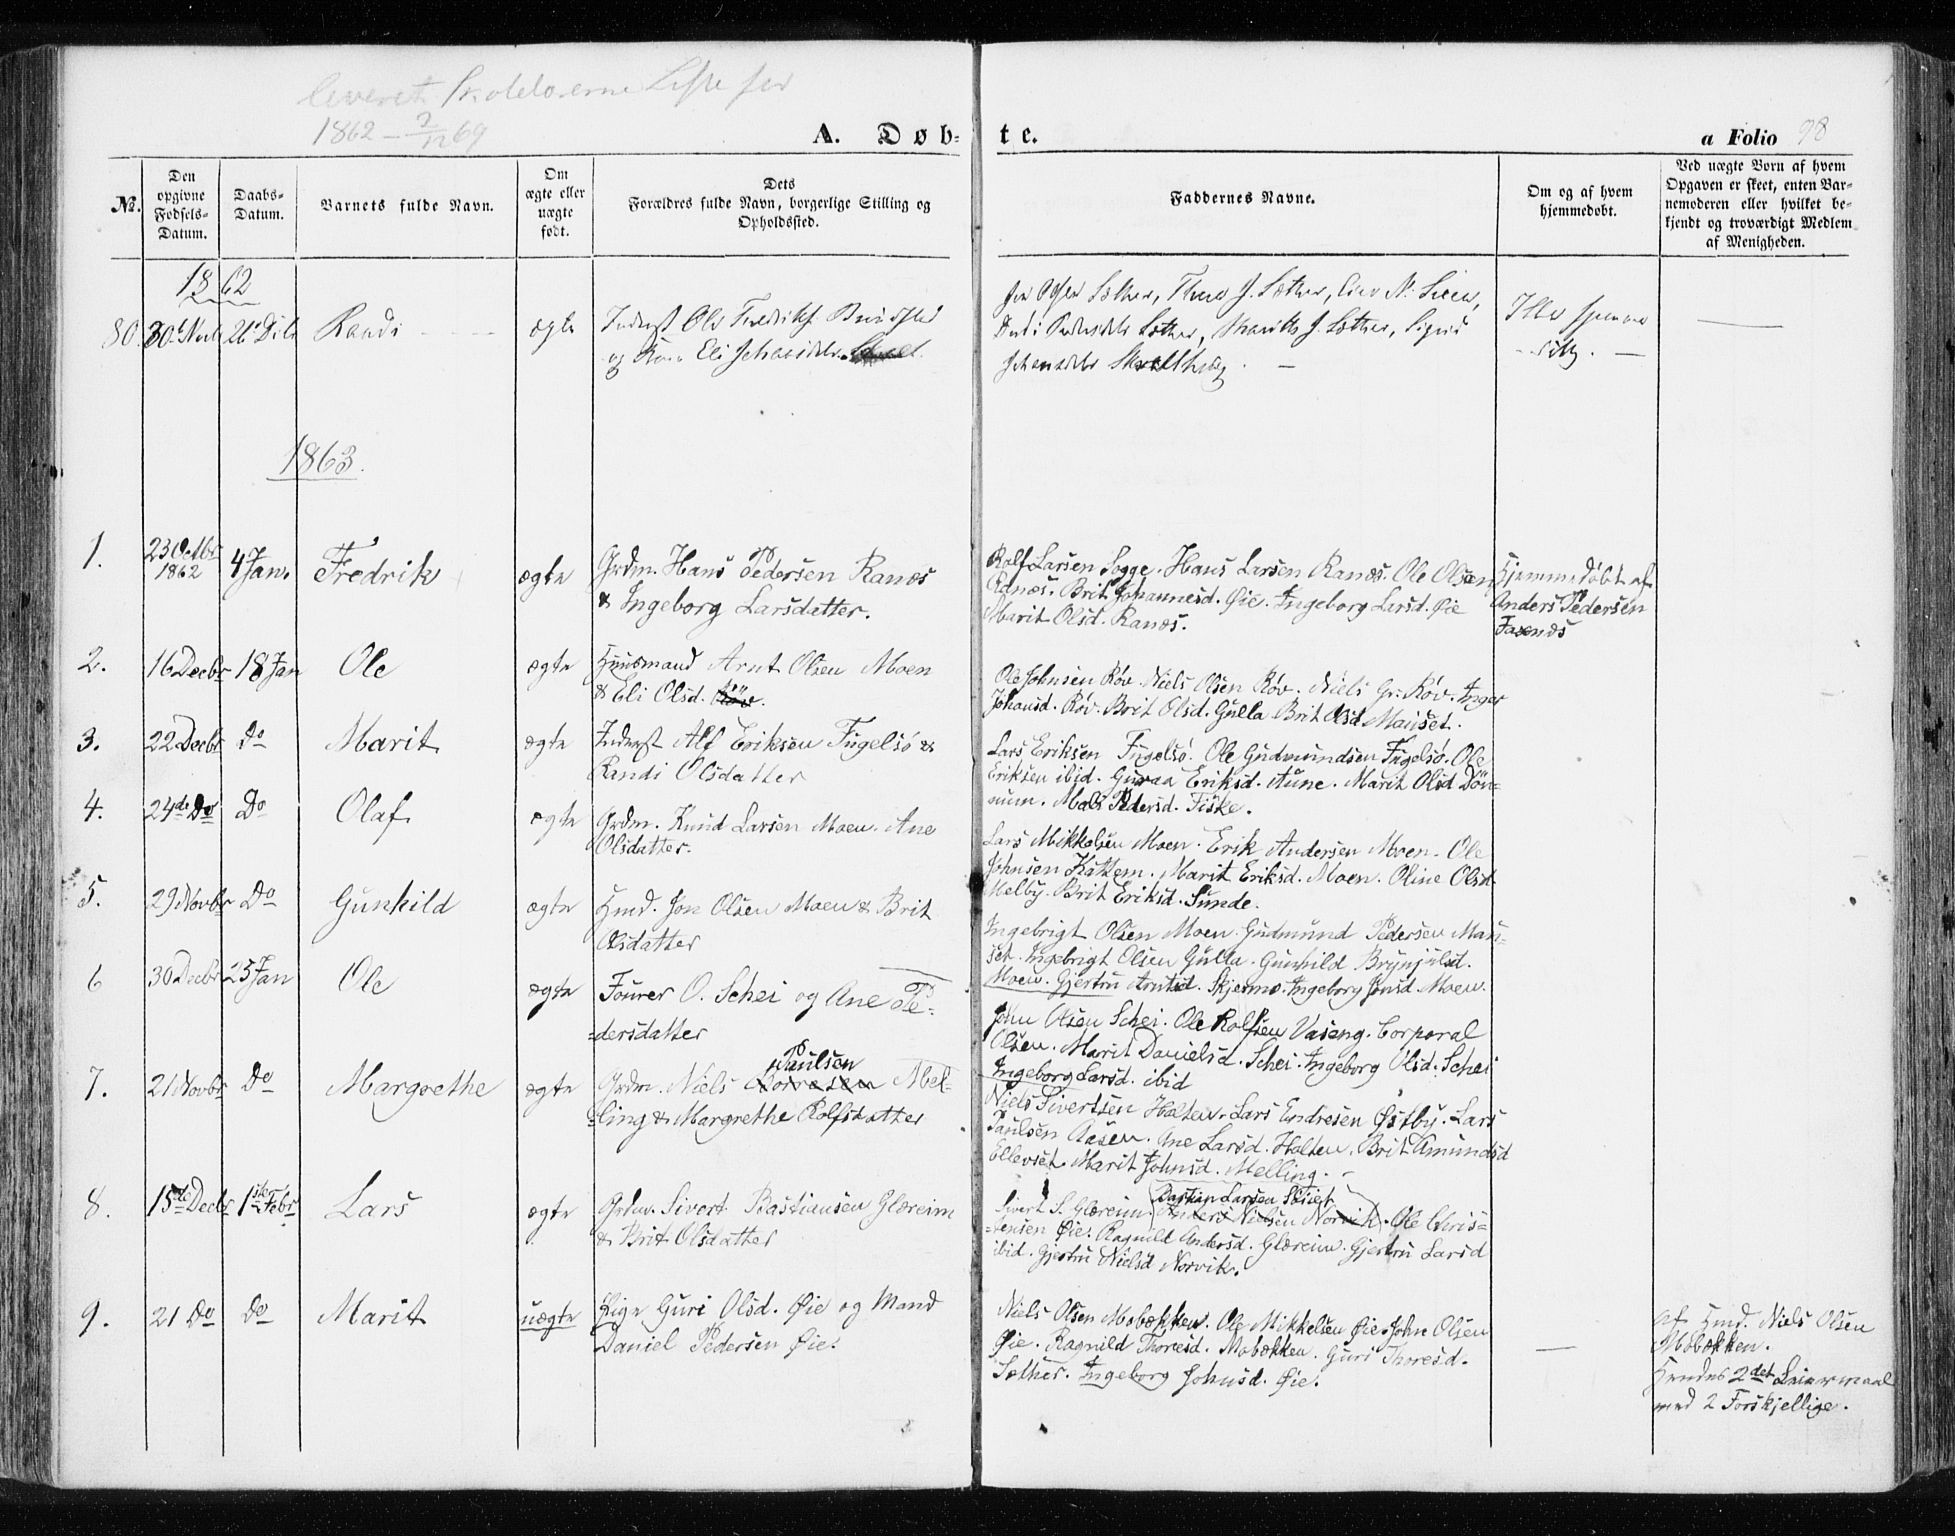 1862 - 2/12 69
A. Døb=
te.
a Folio 98
No.
Den opgivne Fødsels-Datum.
Daabs-Datum.
Barnets fulde Navn.
Om ægte eller uægte født.
Dets Forældres fulde Navn, borgerlige Stilling og Opholdssted.
Faddernes Navne.
Om og af hvem hjemmedøbt.
Ved uægte Børn af hvem Opgaven er skeet, enten Barnemoderen eller hvilket bekjendt og troværdigt Medlem af Menigheden.
1862
80. 26 Randi ægte
Inderst Ole
og Kone Eli
1863.
1. 23 Octbr 1862 4 Jan. Fredrik ægte
Grdm. Hans Pedersen Ranæs
& Ingeborg Larsdatter.
Rolf Larsen Sogge. Hans Larsen Ranæs. Ole Olsen
Ranæs. Brit Johannesd. Øie. Ingeborg Larsd. Øie
Marit Olsd. Ranæs.
Hjemmedøbt af
Anders Pedersen
2. 16 Decbr 18 Jan Ole ægte
Huusmand Arnt Olsen Moen
& Eli Olsd.
Ole Johnsen Røv. Niels Olsen Røv. Niels Gr. Røv. Inger
Johansd. Røv. Brit Olsd. Gulla Brit Olsd Mauset.
3. 22 Decbr Do Marit ægte
Inderst Alf Eriksen Fugelsö &
Randi Olsdatter
Lars Eriksen Fugelsö. Ole Gudmundsen Fugelsö. Ole
Eriksen ibid. Guraa Eriksd. Aune. Marit Olsd Dön=
num. Pedersd. Fiske.
4. 24de Do Do Olaf ægte
Grdm. Knud Larsen Moen. Ane
Olsdatter.
Lars Mikkelsen Moen. Erik Andersen Moen. Ole
Johnsen Kattem. Marit Eriksd. Moen. Oline Olsd
Melby. Brit Eriksd. Sunde.
5. 29 Novbr Do Gunhild ægte
Hmd. Jon Olsen Moen & Brit
Olsdatter
Ingebrigt Olsen Moen. Gudmund Pedersen Mau=
set. Ingebrigt Olsen Gulla. Gunhild Brynjulsd.
Moen. Gjertru Arntsd. Skjermo. Ingeborg Jonsd. Moen.
6 30 Decbr 25 Jan Ole ægte
Fourer O. Schei og Ane Pe=
=dersdatter
John Olsen Schei. Ole Rolfsen Vaseng. Corporal
Olsen. Marit Danielsd. Schei. Ingeborg Olsd. Schei
Ingeborg Larsd. ibid
7. 21 Novbr Do Margrethe ægte
Paulsen
Grdm. Niels Mel=
=ling & Margrethe Rolfsdatter
Niels Sivertsen Halten. Lars Endresen Østby. Lars
Paulsen Aasen. Ane Larsd. Halten. Brit Amundsd
Ellevset. Marit Johnsd. Melling.
8. 15de Decbr 1ste Febr Lars ægte
Grdm. Sivert Bastiansen Glæreim
& Brit Olsdatter
Bastian Larsen
Sivert S. Glæreim. Anders Nielsen Norvik. Ole Chris=
=tensen Øie. Ragnild Andersd. Glæreim. Gjertru Larsd
ibid. Gjertru Nielsd Norvik.
9. 21 Do Do Marit uægte
Pige Guri Olsd. Øie og Mand
Daniel Pedersen Øie.
Niels Olsen Mobækken. Ole Mikkelsen Øie. John Olsen
Øie. Ragnild Thoresd. Mobækken. Guri Thoresd.
Sæther. Ingeborg Johnsd. Øie.
af Hmd. Niels Olsen
Mobækken.
Hendes 2det Leiermaal
med 2 Forskjellige.